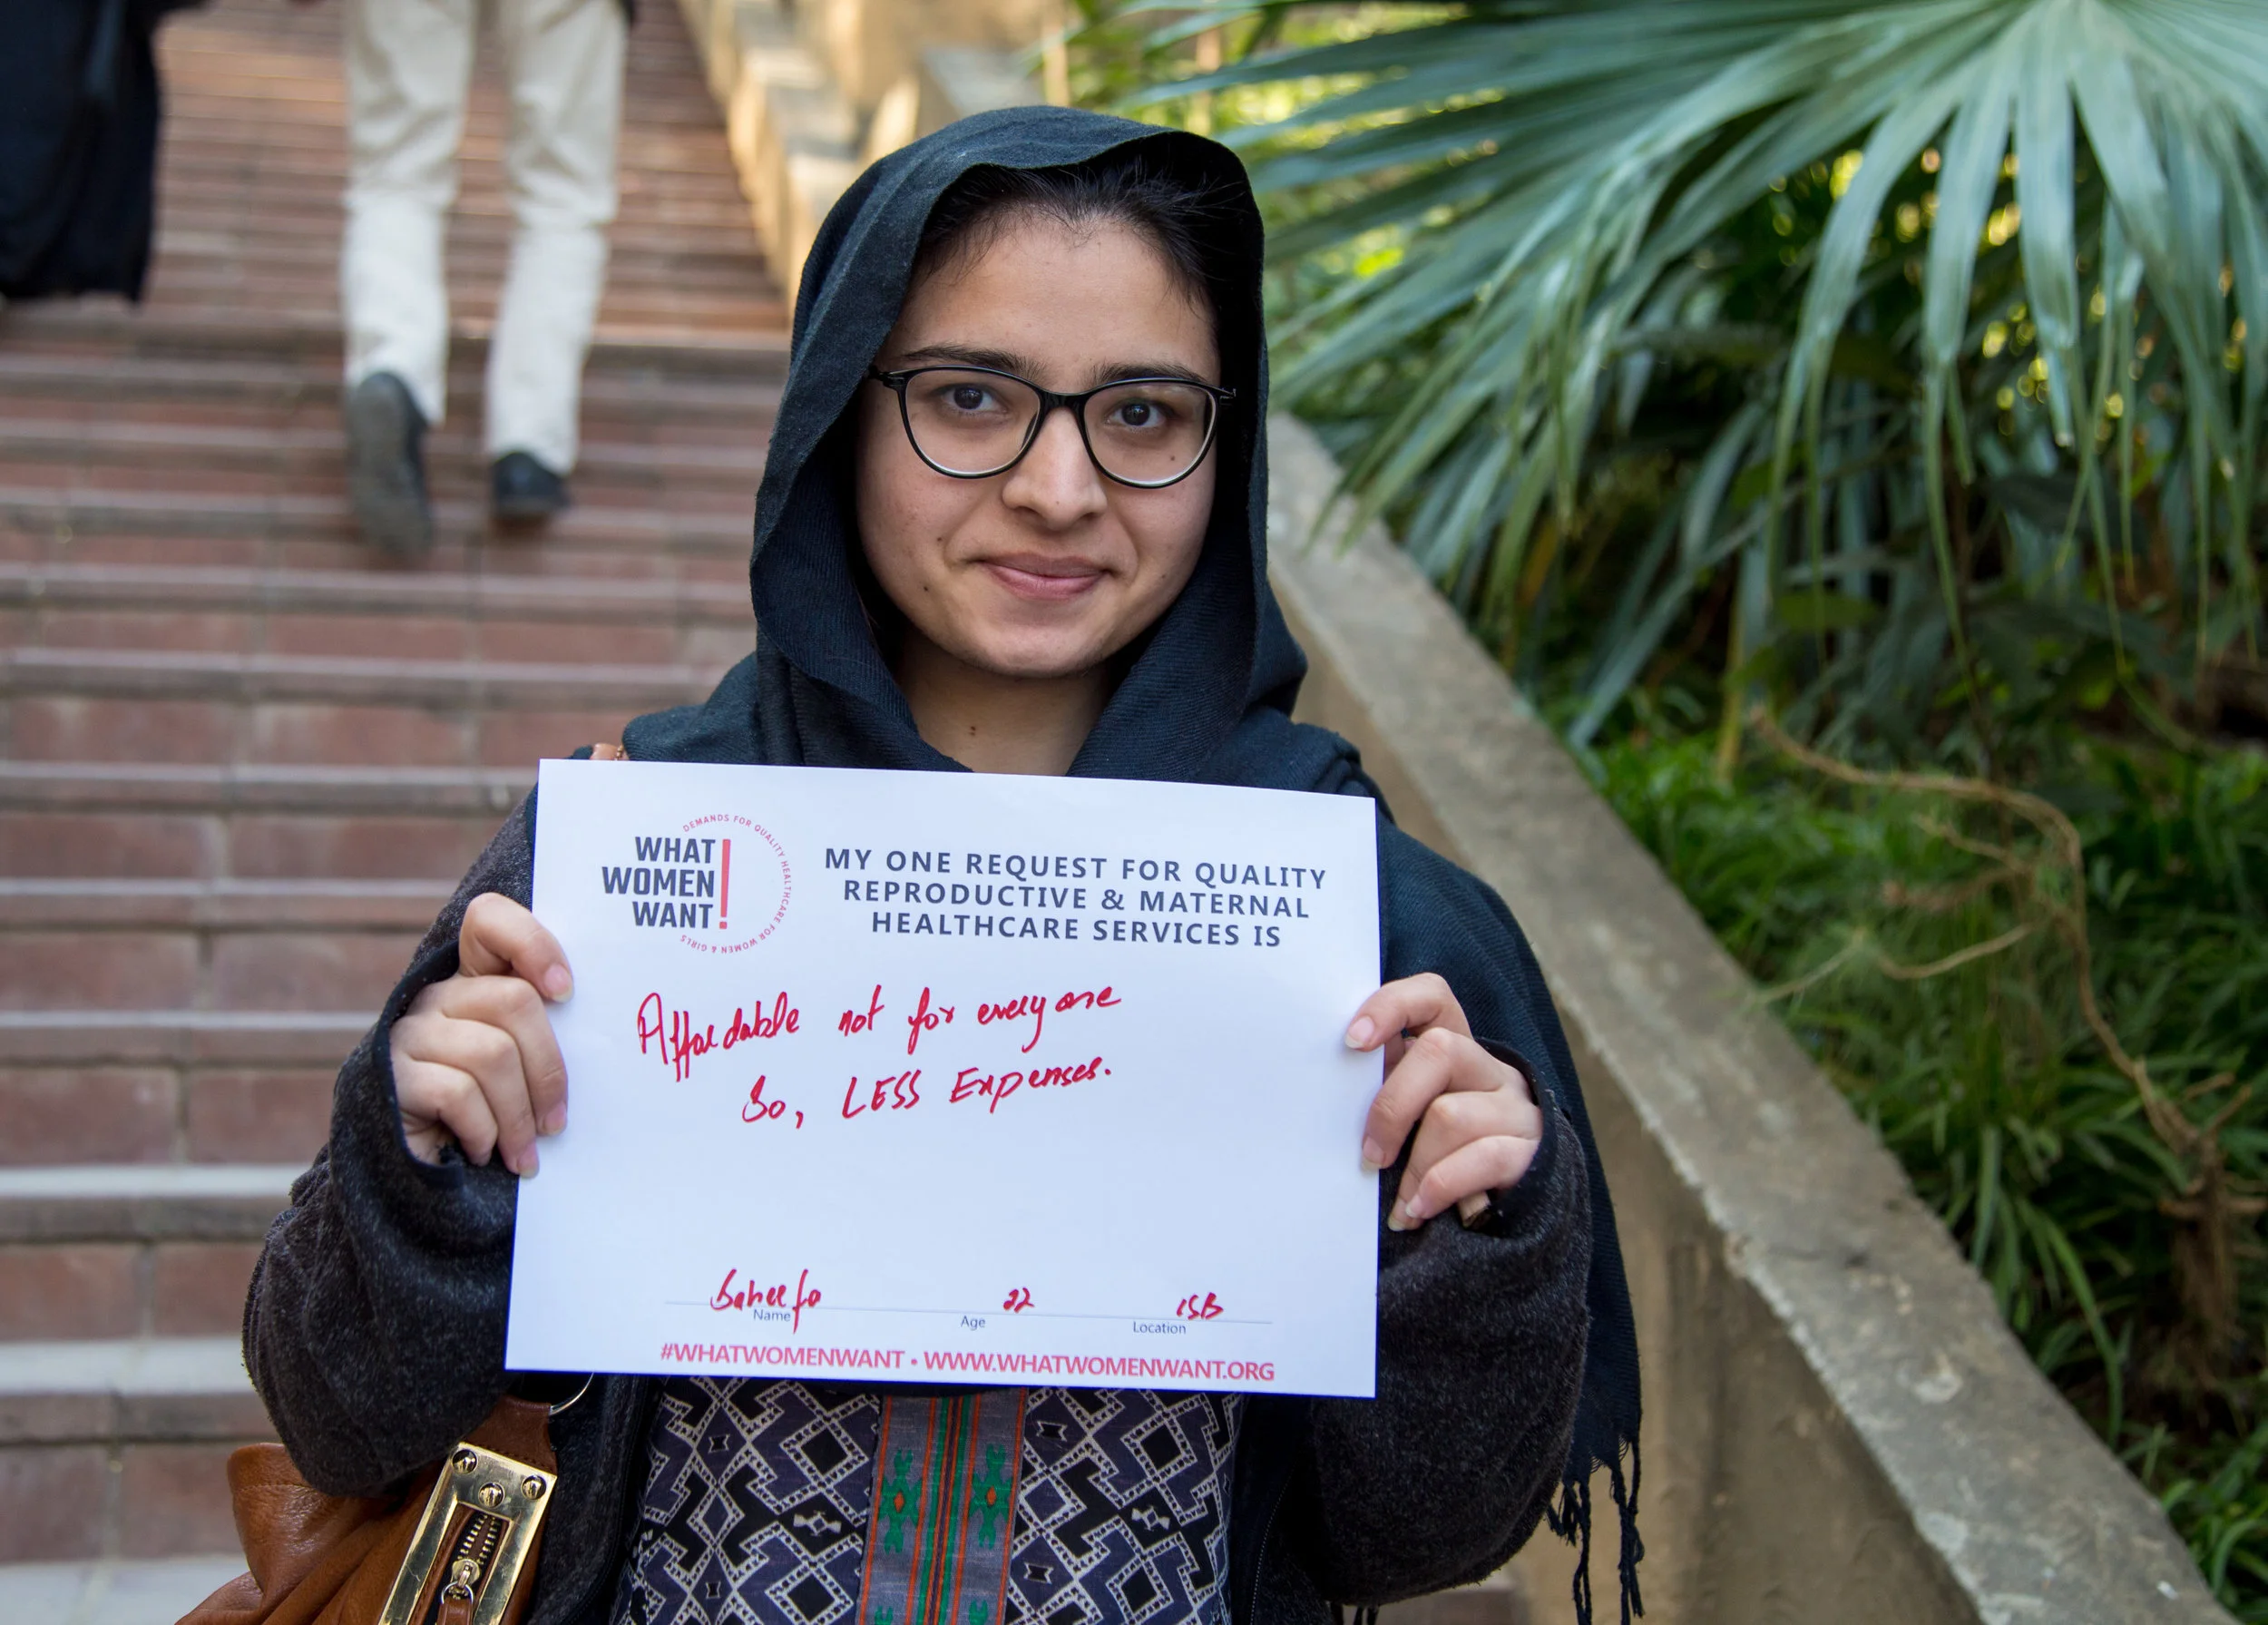 DEMANDS FOR QUALITY HEALTHCARE FOR WOMEN & GIRLS
WHAT
WOMEN
WANT!
MY ONE REQUEST FOR QUALITY
REPRODUCTIVE & MATERNAL
HEALTHCARE SERVICES IS
Affordable not for everyone
So, LESS Expenses.
Saheefa 22 ISB
Name Age Location
#WHATWOMENWANT • WWW.WHATWOMENWANT.ORG